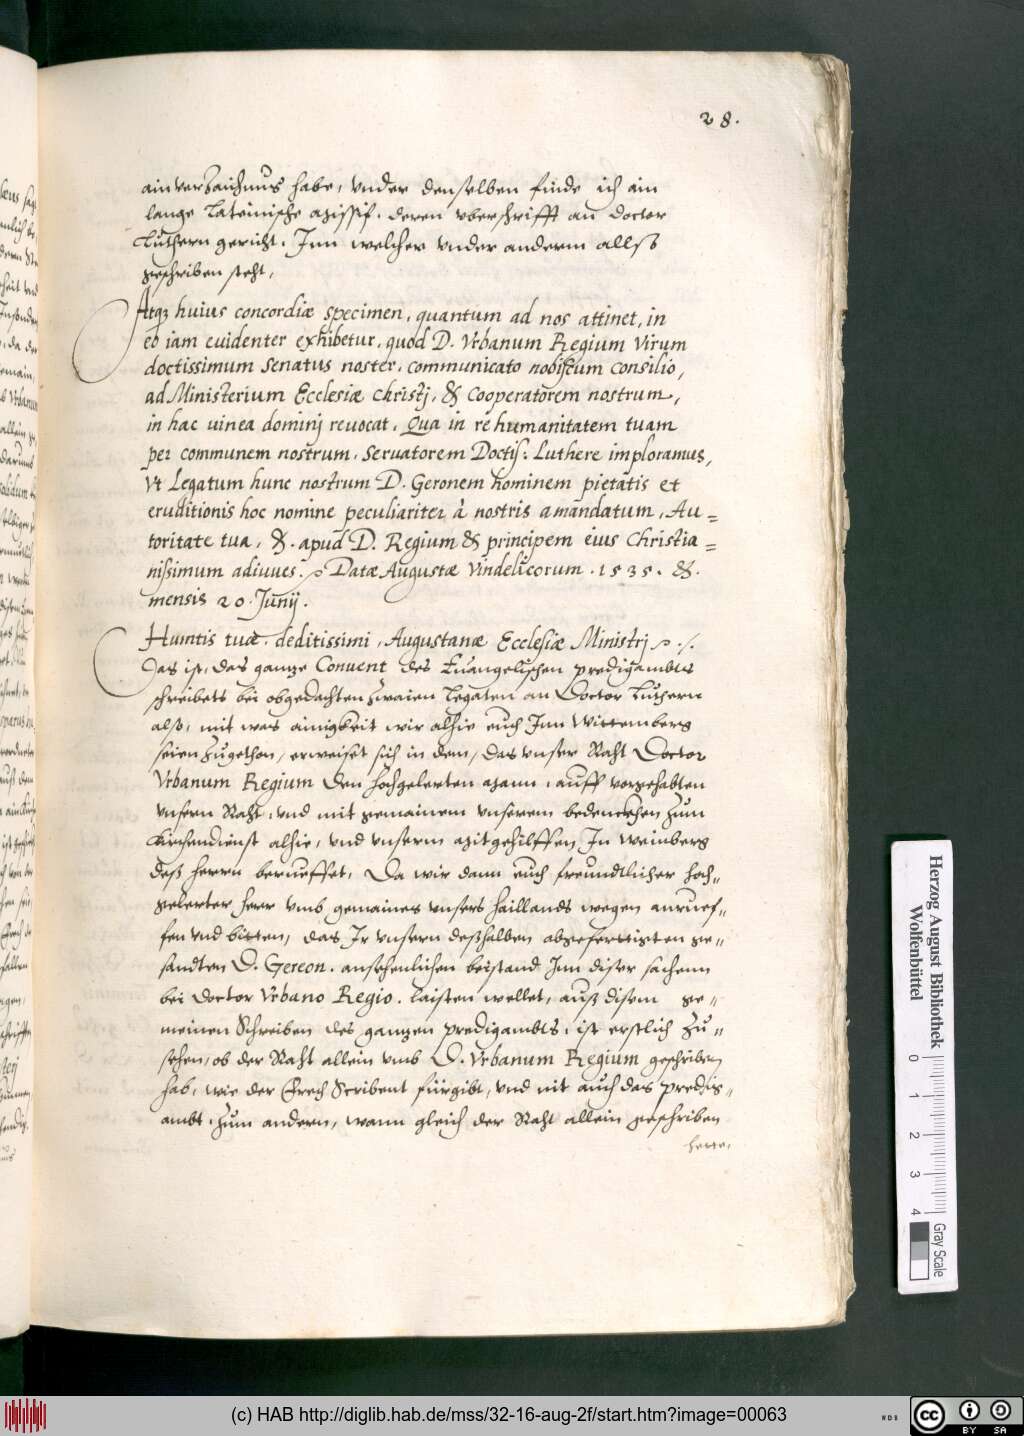 28.
ain verzaichnus habe, vnder denselben finde ich ain
lange Lateinische Missif. deren vberschrifft an Doctor
Luthern gericht. Inn welcher vnder anderm allso
geschriben steht,
Atq3 huius concordiæ specimen, quantum ad nos attinet, in
eo iam euidenter exhibetur, quod D. Vrbanum Regium Virum
doctissimum Senatus noster, communicato nobiscum Consilio,
ad Ministerium Ecclesiæ Christj, & Cooperatorem nostrum,
in hac uinea dominj reuocat, Qua in re humanitatem tuam
per communem nostrum Seruatorem Doctiss: Luthere imploramus,
Vt Legatum hunc nostrum D. Geronem hominem pietatis et
eruditionis hoc nomine peculiariter à nostris amandatum, Au=
toritate tua, &. apud D. Regium & principem eius Christia=
nissimum adiuues. Datæ Augustæ Vindelicorum . 1535. &.
mensis 20 Junij.
Humtis tuæ. deditissimi, Augustanæ Ecclesiæ Ministrj
Das ist, das gantze Conuent des Euangelischen predigambts
schreibets bei obgedachten zwaien Legaten an Doctor Luthern
also, mit was ainigkeit wir alhie euch Inn Wittemberg
seien zugethon, erweiset sich in dem, das vnser Raht Doctor
Vrbanum Regium den hochgelerten Mann, auff vorgehabten
vnsern Raht, vnd mit gemainem vnserem bedenckhen zum
Kirchendienst alhie, vnd vnserm Mitgehilffen In Weinberg
deß Herrn berueffet, Da wir dann euch freundtlicher hoch=
gelerter Herr vmb gemaines vnsers Haillands wegen anruef=
fen vnd bitten, das Ir vnsern deßhalben abgefertigten ge=
sandten D. Gereon. ansehenlichen beistand Inn diser sachenn
bei Doctor Vrbano Regio. laisten wellet, auß disem ge=
meinen Schreiben des gantzen predigambts, ist erstlich zu=
sehen, ob der Raht allein vmb D. Vrbanum Regium geschriben
hab, wie der frech Scribent fürgibt, vnd nit auch das predig=
ambt, zum andern, wann gleich der Raht allein geschriben
hette,
Herzog August Bibliothek
Wolfenbüttel
0 1 2 3 4
Gray Scale
(c) HAB http://diglib.hab.de/mss/32-16-aug-2f/start.htm?image=00063
WDB
cc BY SA